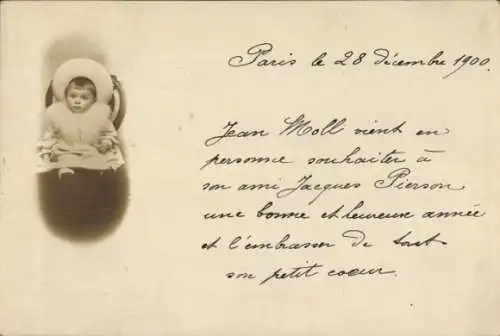 Paris le 28 décembre 1900.
Jean Moll vient en
personne souhaiter à
son ami Jacques Pierson
une bonne et heureuse année
et l'embrasser de tout
son petit coeur.